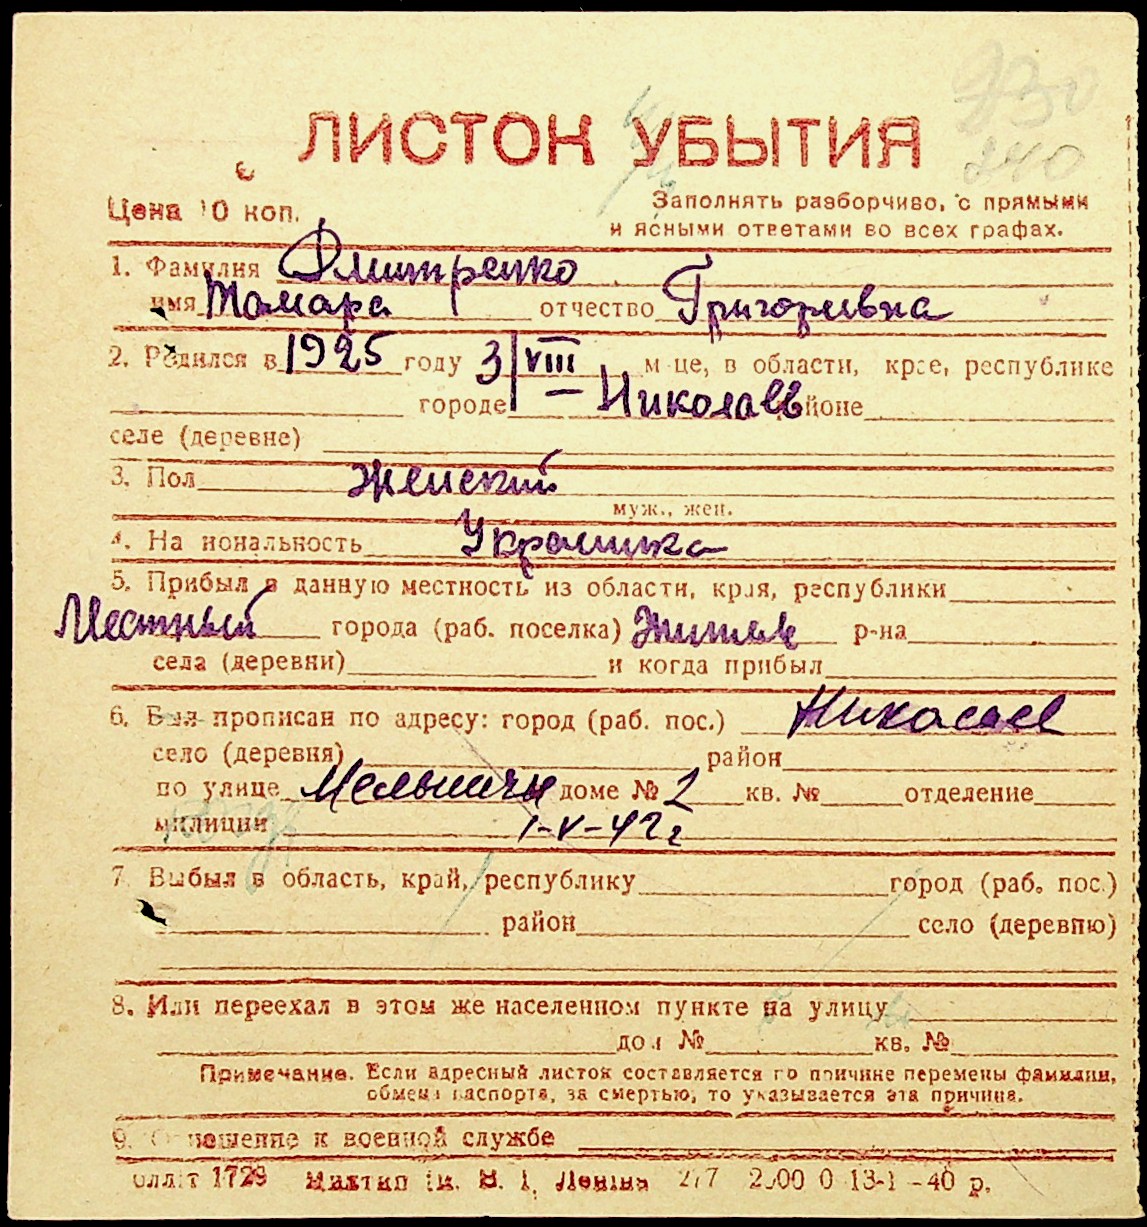 230
240
ЛИСТОК УБЫТИЯ
Цена 10 коп.
Заполнять разборчиво, с прямыми
и ясными ответами во всех графах.
1. Фамилия Дмитренко
имя Тамара отчество Григорьевна
2. Родился в 1925 году 3/VIII м-це, в области, крае, республике
городе Николаев районе
селе (деревне)
3. Пол женский
муж., жен.
4. Национальность Украинка
5. Прибыл в данную местность из области, края, республики
Местный города (раб. поселка) житель р-на
села (деревни) и когда прибыл
6. Был прописан по адресу: город (раб. пос.) Николаев
село (деревня) район
по улице доме № 2 кв. № отделение
милиции 1-V-42 г
7. Выбыл в область, край, республику город (раб. пос.)
район село (деревню)
8. Или переехал в этом же населенном пункте на улицу
дом № кв. №
Примечание. Если адресный листок составляется по причине перемены фамилии,
обмена паспорта, за смертью, то указывается эта причина.
9. Отношение к военной службе
1729 Леніна 277 13-1-40 р.